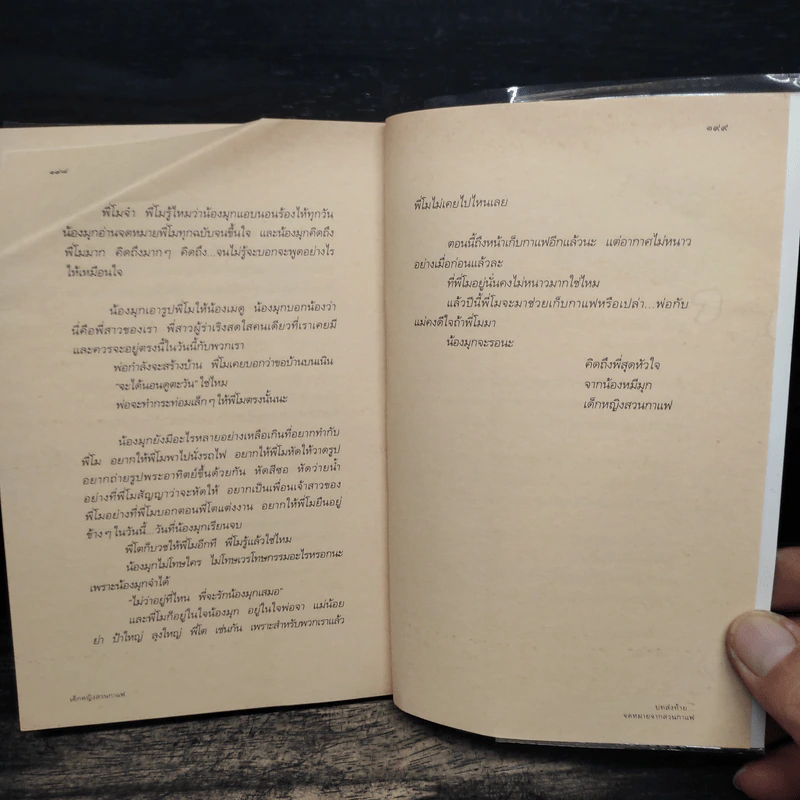 ๑๙๘
พี่โมจ๋า พี่โมรู้ไหมว่าน้องมุกแอบนอนร้องไห้ทุกวัน
น้องมุกอ่านจดหมายพี่โมทุกฉบับจนขึ้นใจ และน้องมุกคิดถึง
พี่โมมาก คิดถึงมากๆ คิดถึง...จนไม่รู้จะบอกจะพูดอย่างไร
ให้เหมือนใจ
น้องมุกเอารูปพี่โมให้น้องเมดู น้องมุกบอกน้องว่า
นี่คือพี่สาวของเรา พี่สาวผู้ร่าเริงสดใสคนเดียวที่เราเคยมี
และควรจะอยู่ตรงนี้ในวันนี้กับพวกเรา
พ่อกำลังจะสร้างบ้าน พี่โมเคยบอกว่าขอบ้านบนเนิน
“จะได้นอนดูตะวัน” ใช่ไหม
พ่อจะทำกระท่อมเล็กๆ ให้พี่โมตรงนั้นนะ
น้องมุกยังมีอะไรหลายอย่างเหลือเกินที่อยากทำกับ
พี่โม อยากให้พี่โมพาไปนั่งรถไฟ อยากให้พี่โมหัดให้วาดรูป
อยากถ่ายรูปพระอาทิตย์ขึ้นด้วยกัน หัดสีซอ หัดว่ายน้ำ
อย่างที่พี่โมสัญญาว่าจะหัดให้ อยากเป็นเพื่อนเจ้าสาวของ
พี่โมอย่างที่พี่โมบอกตอนพี่โตแต่งงาน อยากให้พี่โมยืนอยู่
ข้างๆ ในวันนี้...วันที่น้องมุกเรียนจบ
พี่โตก็บวชให้พี่โมอีกที พี่โมรู้แล้วใช่ไหม
น้องมุกไม่โทษใคร ไม่โทษเวรโทษกรรมอะไรหรอกนะ
เพราะน้องมุกจำได้
“ไม่ว่าอยู่ที่ไหน พี่จะรักน้องมุกเสมอ”
และพี่โมก็อยู่ในใจน้องมุก อยู่ในใจพ่อจา แม่น้อย
ย่า ป้าใหญ่ ลุงใหญ่ พี่โต เช่นกัน เพราะสำหรับพวกเราแล้ว
เด็กหญิงสวนกาแฟ
๑๙๙
พี่โมไม่เคยไปไหนเลย
ตอนนี้ถึงหน้าเก็บกาแฟอีกแล้วนะ แต่อากาศไม่หนาว
อย่างเมื่อก่อนแล้วละ
ที่พี่โมอยู่นั่นคงไม่หนาวมากใช่ไหม
แล้วปีนี้พี่โมจะมาช่วยเก็บกาแฟหรือเปล่า...พ่อกับ
แม่คงดีใจถ้าพี่โมมา
น้องมุกจะรอนะ
คิดถึงพี่สุดหัวใจ
จากน้องหมีมุก
เด็กหญิงสวนกาแฟ
บทส่งท้าย...
จดหมายจากสวนกาแฟ